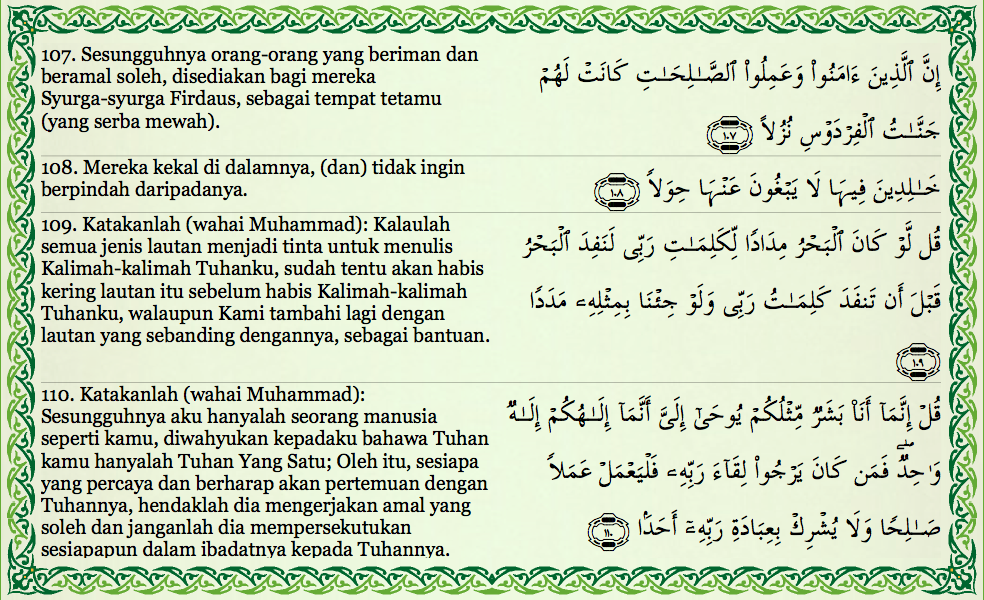 107. Sesungguhnya orang-orang yang beriman dan
beramal soleh, disediakan bagi mereka
Syurga-syurga Firdaus, sebagai tempat tetamu
(yang serba mewah).
إِنَّ ٱلَّذِينَ ءَامَنُوا۟ وَعَمِلُوا۟ ٱلصَّـٰلِحَـٰتِ كَانَتْ لَهُمْ
جَنَّـٰتُ ٱلْفِرْدَوْسِ نُزُلاً ١٠٧
108. Mereka kekal di dalamnya, (dan) tidak ingin
berpindah daripadanya.
خَـٰلِدِينَ فِيهَا لَا يَبْغُونَ عَنْهَا حِوَلاً ١٠٨
109. Katakanlah (wahai Muhammad): Kalaulah
semua jenis lautan menjadi tinta untuk menulis
Kalimah-kalimah Tuhanku, sudah tentu akan habis
kering lautan itu sebelum habis Kalimah-kalimah
Tuhanku, walaupun Kami tambahi lagi dengan
lautan yang sebanding dengannya, sebagai bantuan.
قُل لَّوْ كَانَ ٱلْبَحْرُ مِدَادًا لِّكَلِمَـٰتِ رَبِّى لَنَفِدَ ٱلْبَحْرُ
قَبْلَ أَن تَنفَدَ كَلِمَـٰتُ رَبِّى وَلَوْ جِئْنَا بِمِثْلِهِۦ مَدَدًا
١٠٩
110. Katakanlah (wahai Muhammad):
Sesungguhnya aku hanyalah seorang manusia
seperti kamu, diwahyukan kepadaku bahawa Tuhan
kamu hanyalah Tuhan Yang Satu; Oleh itu, sesiapa
yang percaya dan berharap akan pertemuan dengan
Tuhannya, hendaklah dia mengerjakan amal yang
soleh dan janganlah dia mempersekutukan
sesiapapun dalam ibadatnya kepada Tuhannya.
قُلْ إِنَّمَآ أَنَا۟ بَشَرٌ مِّثْلُكُمْ يُوحَىٰٓ إِلَىَّ أَنَّمَآ إِلَـٰهُكُمْ إِلَـٰهٌ
وَٰحِدٌ ۖ فَمَن كَانَ يَرْجُوا۟ لِقَآءَ رَبِّهِۦ فَلْيَعْمَلْ عَمَلاً
صَـٰلِحًا وَلَا يُشْرِكْ بِعِبَادَةِ رَبِّهِۦٓ أَحَدًۢا ١١٠